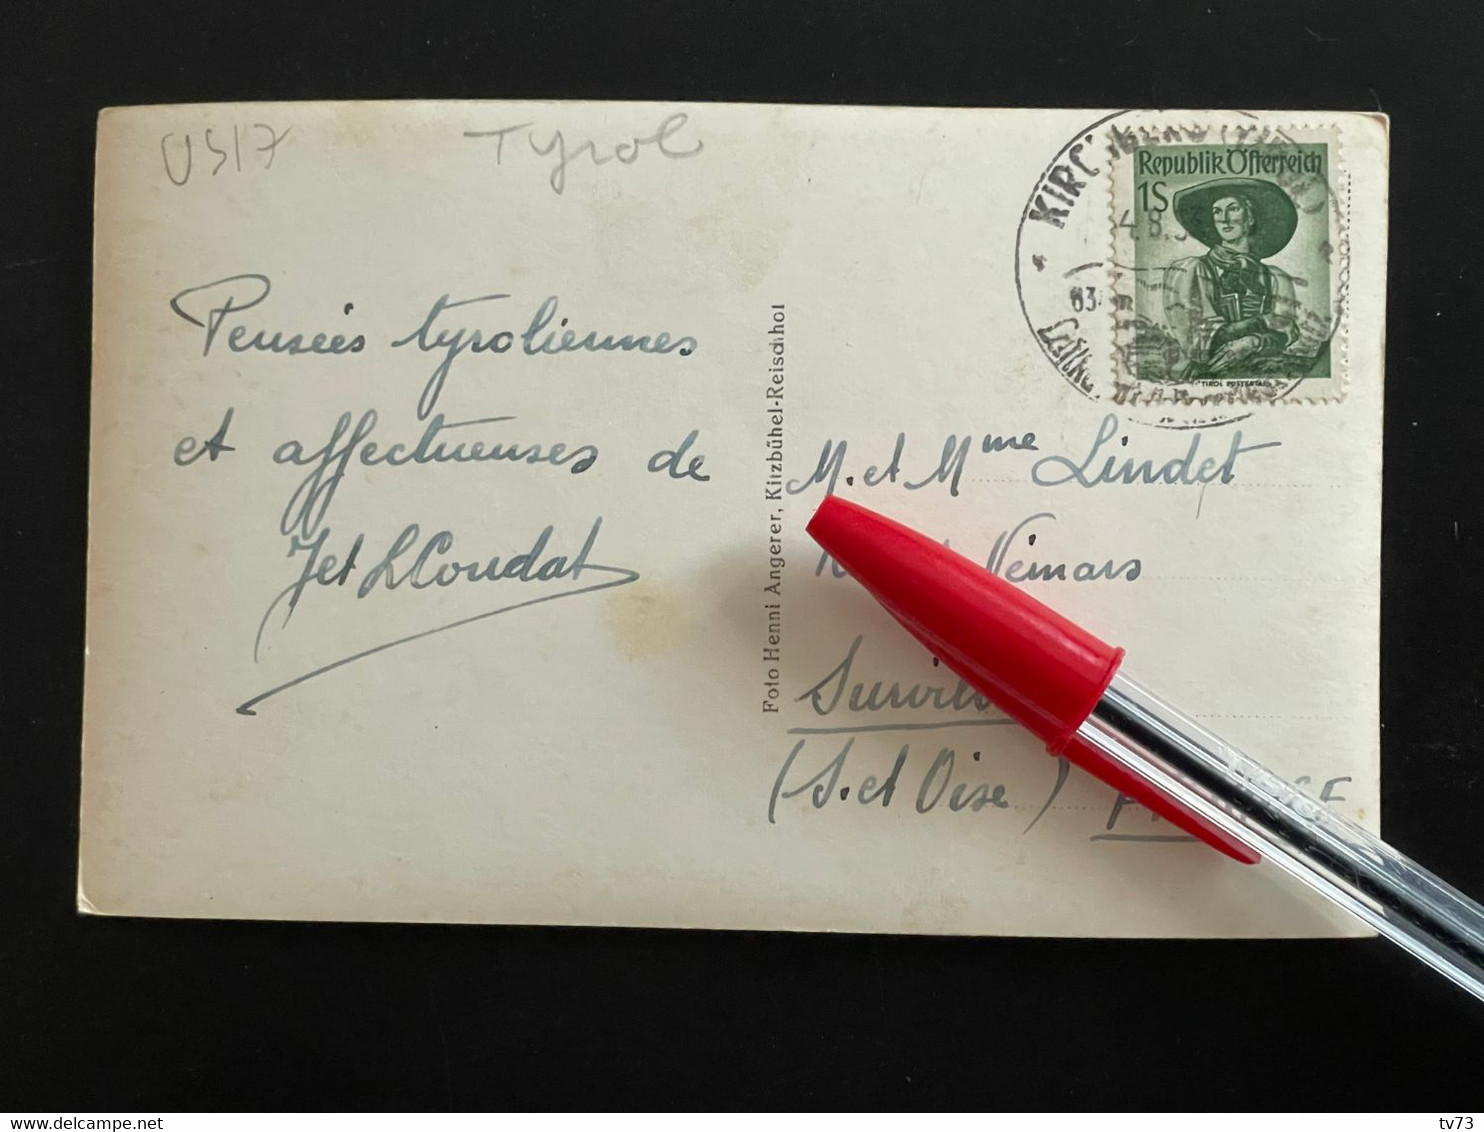 U517
Tyrol
Pensées tyroliennes
et affectueuses de
J et L Coudat
Foto Henni Angerer, Kitzbühel-Reischhof
Republik Österreich
1S
TIROL PUSTERTAL
4.8.5
M. et Mme Lindet
Nemars
(S. et Oise)
tv73